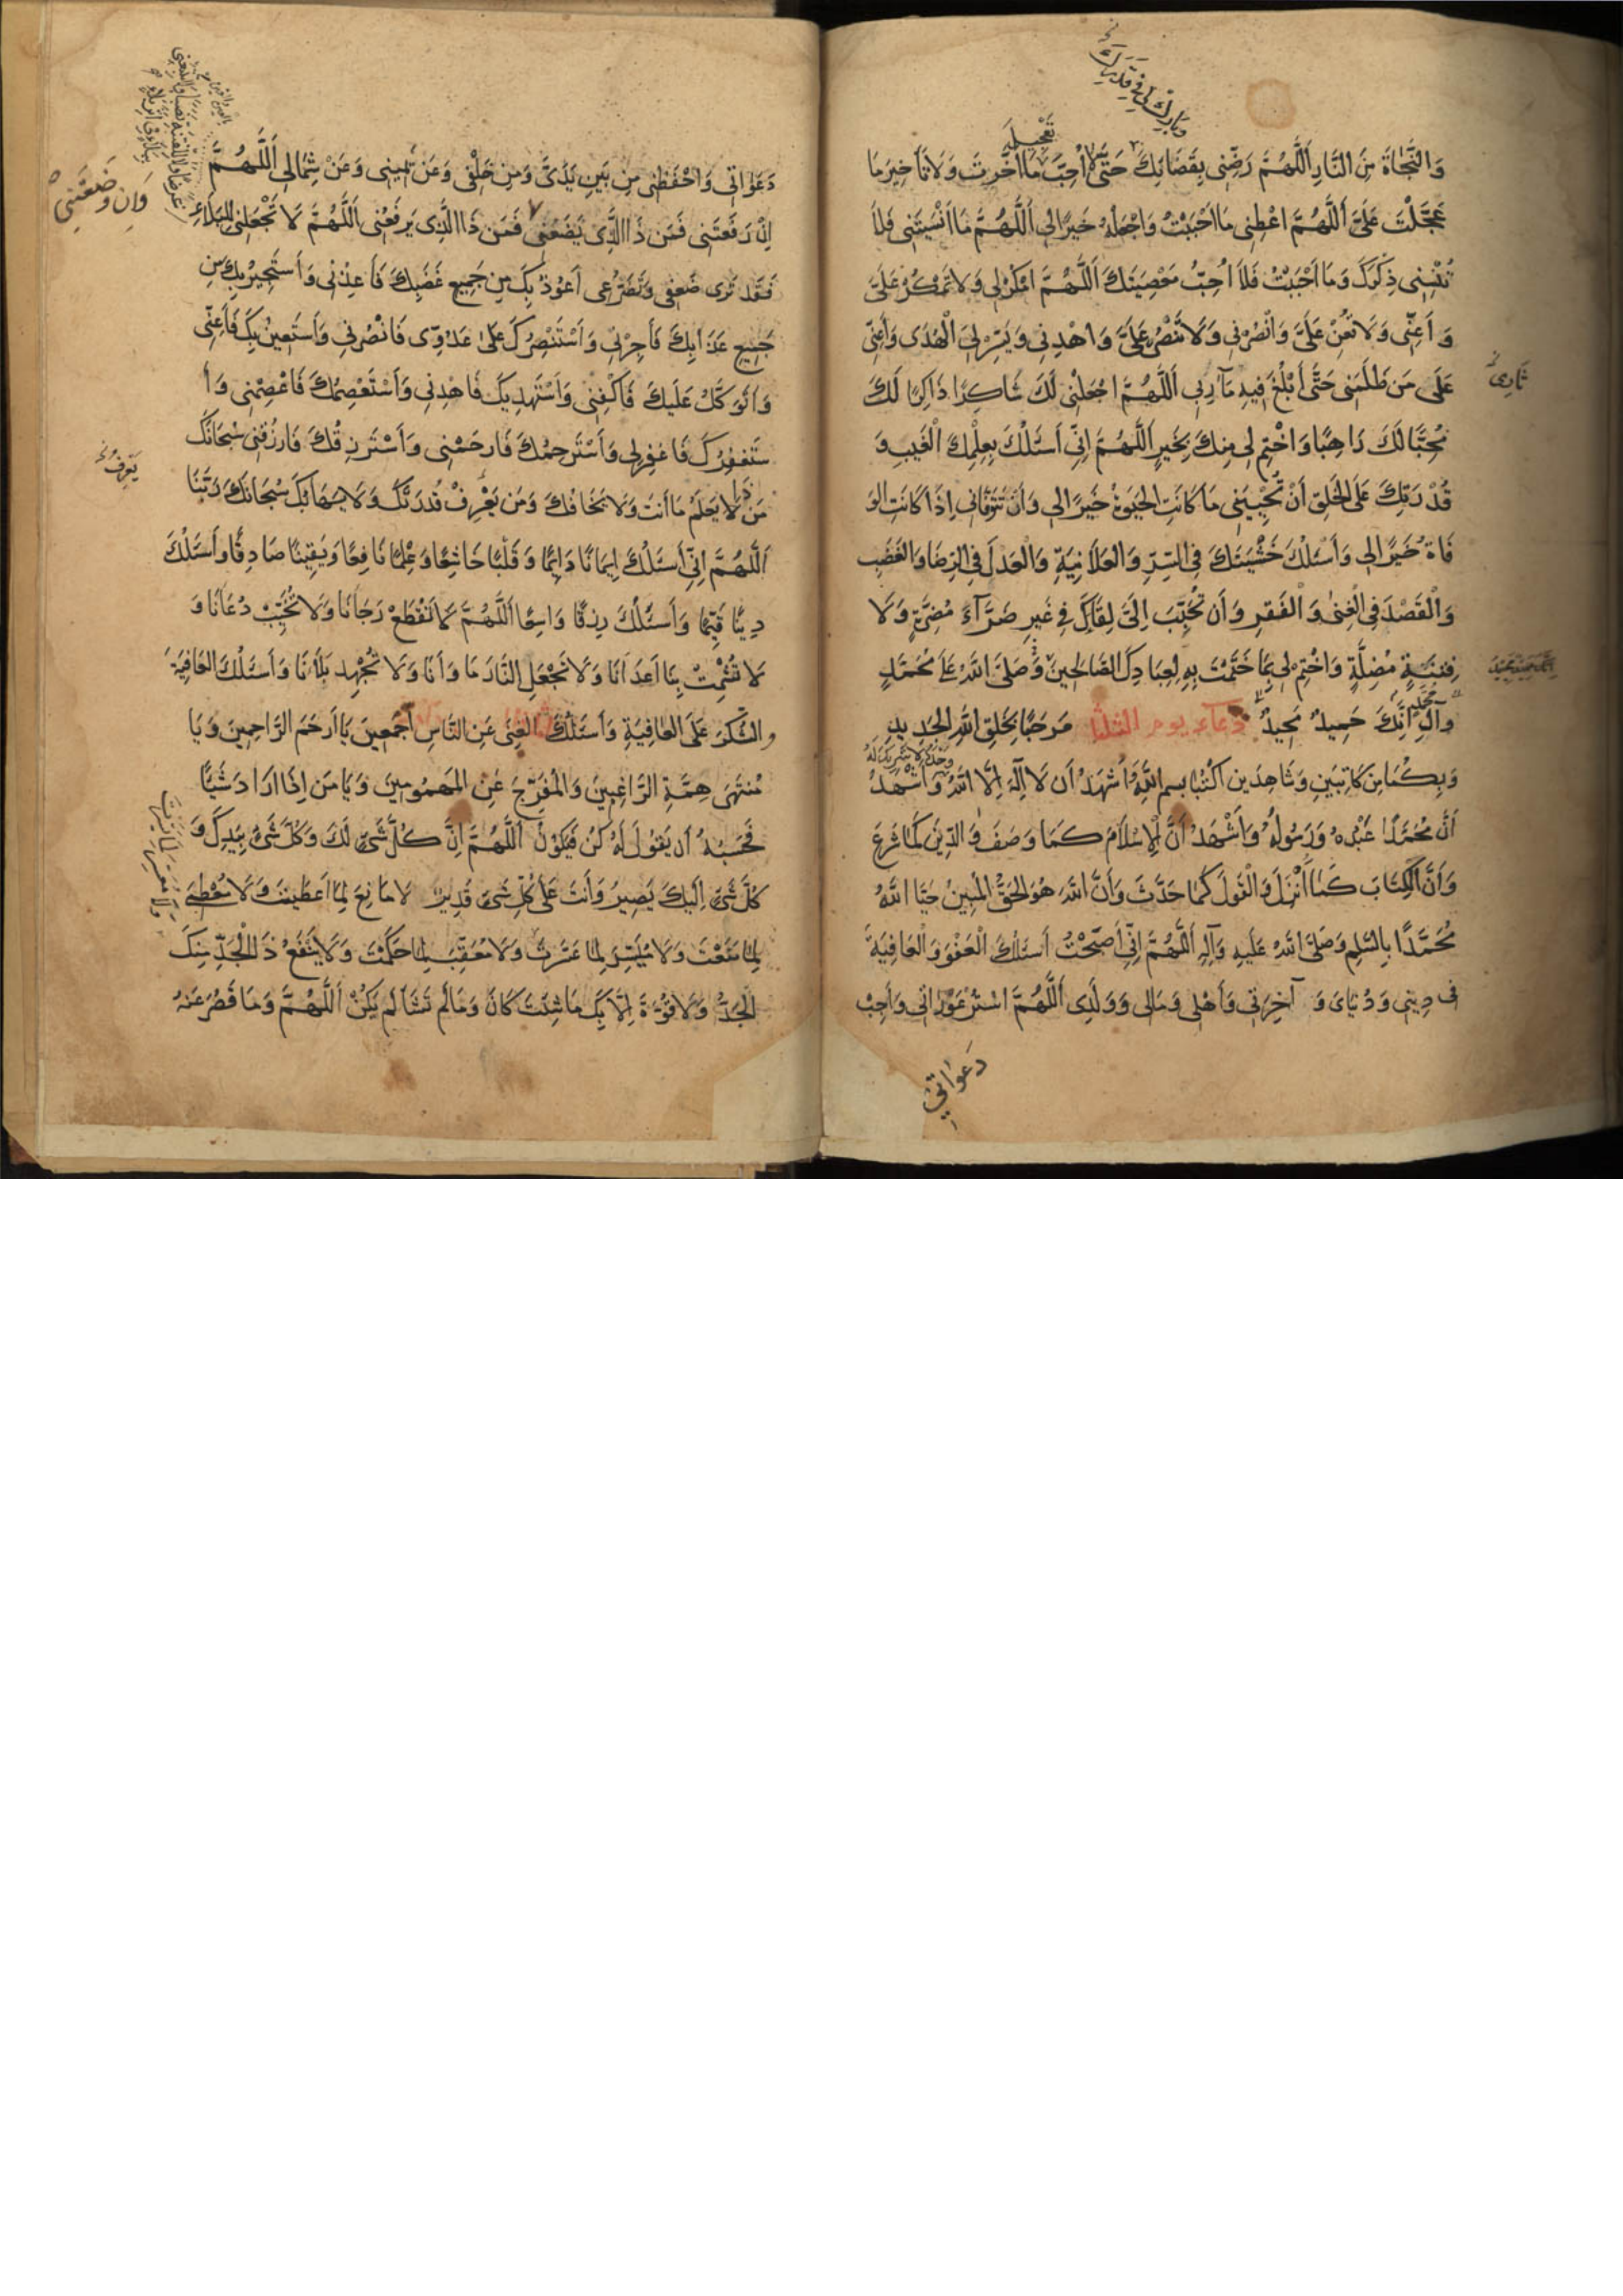 وبارك لي في قدرك
تعجيل
وَالنَّجَاةَ مِنَ النَّارِ اَللَّهُمَّ رَضِّنِي بِقَضَائِكَ حَتَّى لا أُحِبَّ مَا اَخَّرْتَ وَلَا تَأْخِيرَ مَا
عَجَّلْتَ عَلَيَّ اَللَّهُمَّ اَعْطِنِي مَا اَحْبَبْتُ وَاجْعَلْهُ خَيْرًا لِي اَللَّهُمَّ مَا اَنْسَيْتَنِي فَلَا
تُنْسِنِي ذِكْرَكَ وَمَا اَحْبَبْتُ فَلَا اُحِبُّ مَعْصِيَتَكَ اَللَّهُمَّ امْكُرْ لِي وَلَا تَمْكُرْ عَلَيَّ
وَ اَعِنِّي وَلَا تُعِنْ عَلَيَّ وَانْصُرْنِي وَلَا تَنْصُرْ عَلَيَّ وَاهْدِنِي وَيَسِّرْ لِيَ الْهُدَى وَاَعِنِّي
عَلَى مَنْ ظَلَمَنِي حَتَّى أَبْلُغَ فِيهِ مَآرِبِي اَللَّهُمَّ اجْعَلْنِي لَكَ شَاكِرًا ذَاكِرًا لَكَ
ثاري
مُحِبًّا لَكَ رَاهِبًا وَاخْتِمْ لِي مِنْكَ بِخَيْرٍ اَللَّهُمَّ اِنِّي اَسْئَلُكَ بِعِلْمِكَ الْغَيْبِ وَ
قُدْرَتِكَ عَلَى الْخَلْقِ اَنْ تُحْيِيَنِي مَا كَانَتِ الْحَيٰوةُ خَيْرًا لِي وَاَنْ تَتَوَفَّانِي اِذَا كَانَتِ الوَ
فَاةُ خَيْرًا لِي وَاَسْئَلُكَ خَشْيَتَكَ فِي السِّرِّ وَالْعَلَانِيَةِ وَالْعَدْلَ فِي الرِّضَا وَالْغَضَبِ
وَالْقَصْدَ فِي الْغِنٰى وَالْفَقْرِ وَاَنْ تُحَبِّبَ اِلَيَّ لِقَاكَ فِي غَيْرِ ضَرَّآءَ مُضِرَّةٍ وَلَا
فِتْنَةٍ مُضِلَّةٍ وَاخْتِمْ لِي بِمَا خَتَمْتَ بِهِ لِعِبَادِكَ الصَّالِحِينَ وَصَلَّى اللهُ عَلَى مُحَمَّدٍ
انك حميد مجيد
وآلِهِ اِنَّكَ حَمِيدٌ مَجِيدٌ دعاء يوم الثلثا مَرْحَبًا بِخَلْقِ اللهِ الْجَدِيدِ
وحده لا شريك له
وَبِكُمَا مِنْ كَاتِبَيْنِ وَشَاهِدَيْنِ اكْتُبَا بِسْمِ اللهِ اَشْهَدُ اَنْ لَا اِلٰهَ اِلَّا اللهُ وَاَشْهَدُ
اَنَّ مُحَمَّدًا عَبْدُهُ وَرَسُولُهُ وَاَشْهَدُ اَنَّ الْاِسْلَامَ كَمَا وَصَفَ وَالدِّينَ كَمَا شَرَعَ
وَاَنَّ الْكِتَابَ كَمَا اَنْزَلَ وَالْقَوْلَ كَمَا حَدَّثَ وَاَنَّ اللهَ هُوَ الْحَقُّ الْمُبِينُ حَيَّا اللهُ
مُحَمَّدًا بِالسَّلَامِ وَصَلَّى اللهُ عَلَيْهِ وَآلِهِ اَللَّهُمَّ اِنِّي اَصْبَحْتُ اَسْئَلُكَ الْعَفْوَ وَالْعَافِيَةَ
فِي دِينِي وَدُنْيَايَ وَ آخِرَتِي وَاَهْلِي وَمَالِي وَوَلَدِي اَللَّهُمَّ اسْتُرْ عَوْرَاتِي وَاَجِبْ
دَعَوَاتِي
دَعَوَاتِي وَاحْفَظْنِي مِنْ بَيْنِ يَدَيَّ وَمِنْ خَلْفِي وَعَنْ يَمِينِي وَعَنْ شِمَالِي اَللَّهُمَّ
وَاِنْ وَضَعْتَنِي
اِنْ رَفَعْتَنِي فَمَنْ ذَا الَّذِي يَضَعُنِي فَمَنْ ذَا الَّذِي يَرْفَعُنِي اَللَّهُمَّ لَا تَجْعَلْنِي لِلْبَلَاءِ
فَقَدْ تَرَى ضَعْفِي وَتَضَرُّعِي اَعُوذُ بِكَ مِنْ جَمِيعِ غَضَبِكَ فَاَعِذْنِي وَاَسْتَجِيرُ بِكَ مِنْ
جَمِيعِ عَذَابِكَ فَاَجِرْنِي وَاَسْتَنْصِرُكَ عَلَى عَدُوِّي فَانْصُرْنِي وَاَسْتَعِينُ بِكَ فَاَعِنِّي
وَاَتَوَكَّلُ عَلَيْكَ فَاكْفِنِي وَاَسْتَهْدِيكَ فَاهْدِنِي وَاَسْتَعْصِمُكَ فَاعْصِمْنِي وَاَ
سْتَغْفِرُكَ فَاغْفِرْ لِي وَاَسْتَرْحِمُكَ فَارْحَمْنِي وَاَسْتَرْزِقُكَ فَارْزُقْنِي سُبْحَانَكَ
يعرف
مَنْ ذا لَا يَعْلَمُ مَا اَنْتَ وَلَا يَخَافُكَ وَمَنْ يَعْرِفُ قُدْرَتَكَ وَلَا يَهَابُكَ سُبْحَانَكَ رَبَّنَا
اَللَّهُمَّ اِنِّي اَسْئَلُكَ اِيمَانًا دَائِمًا وَقَلْبًا خَاشِعًا وَعِلْمًا نَافِعًا وَيَقِينًا صَادِقًا وَاَسْئَلُكَ
دِينًا قَيِّمًا وَاَسْئَلُكَ رِزْقًا وَاسِعًا اَللَّهُمَّ لَا تَقْطَعْ رَجَانَا وَلَا تُخَيِّبْ دُعَانَا وَ
لَا تُشْمِتْ بِنَا اَعْدَانَا وَلَا تَجْعَلِ النَّارَ مَاْوَانَا وَلَا تُجْهِدْ بَلَاءَنَا وَاَسْئَلُكَ الْعَافِيَةَ
وَالشُّكْرَ عَلَى الْعَافِيَةِ وَاَسْئَلُكَ الْغِنَى عَنِ النَّاسِ اَجْمَعِينَ يَا اَرْحَمَ الرَّاحِمِينَ وَيَا
مُنْتَهَى هِمَّةِ الرَّاغِبِينَ وَالْمُفَرِّجَ عَنِ الْمَهْمُومِينَ وَيَا مَنْ اِذَا اَرَادَ شَيْئًا
فَحَسْبُهُ اَنْ يَقُولَ لَهُ كُنْ فَيَكُونُ اَللَّهُمَّ اِنَّ كُلَّ شَيْءٍ لَكَ وَكُلَّ شَيْءٍ بِيَدِكَ وَ
كُلَّ شَيْءٍ اِلَيْكَ يَصِيرُ وَاَنْتَ عَلَى كُلِّ شَيْءٍ قَدِيرٌ لَا مَانِعَ لِمَا اَعْطَيْتَ وَلَا مُعْطِيَ
لِمَا مَنَعْتَ وَلَا مُيَسِّرَ لِمَا عَسَّرْتَ وَلَا مُعَقِّبَ لِمَا حَكَمْتَ وَلَا يَنْفَعُ ذَا الْجَدِّ مِنْكَ
الْجَدُّ وَلَا قُوَّةَ اِلَّا بِكَ مَا شِئْتَ كَانَ وَمَا لَمْ تَشَاْ لَمْ يَكُنْ اَللَّهُمَّ وَمَا قَصُرَ عَنْهُ